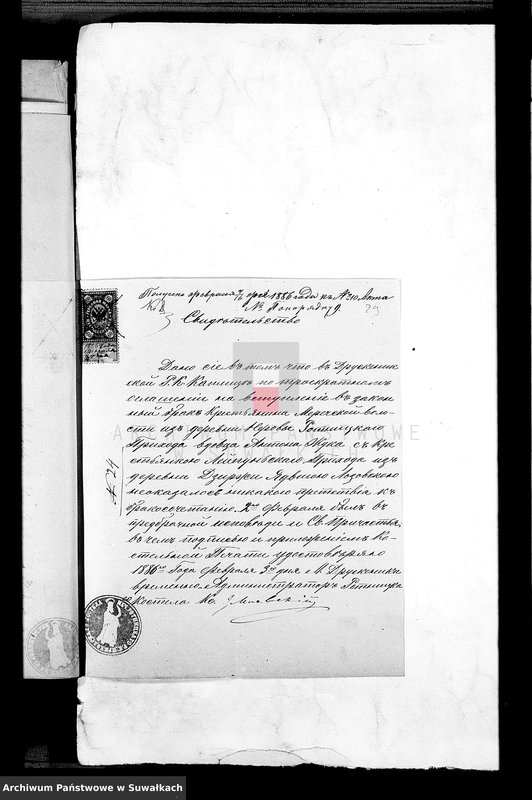 Получено февраля 1886 года къ № 10 Акта
№ Попорядку 9.
Свидѣтельство
Дано сіе въ томъ что въ Друскеник
ской Р. К. Каплицѣ по троекратномъ
оглашеніи на вступленіе въ закон
ный бракъ Крестьянина Мерочской воло-
сти изъ деревни Неровы Ротницкаго
Прихода вдовца Антона Жука съ Кре
стьянкою Лейпунскаго Прихода изъ
деревни Дзиржи Ядвигою Лозовскою
неоказалось никакого препятствія къ
бракосочетанію. 2го Февраля былъ въ
предбрачной исповѣди и Св. Причастія,
въ чемъ подписью и приложеніемъ Ко-
стельной Печати удостовѣряю
1886го Года Февраля 3го дня г. М. Друскеники
временный Администраторъ Ротницка
Костела Кс.
№ 24
ARCHIWUM PAŃSTWOWE
W SUWAŁKACH
Archiwum Państwowe w Suwałkach